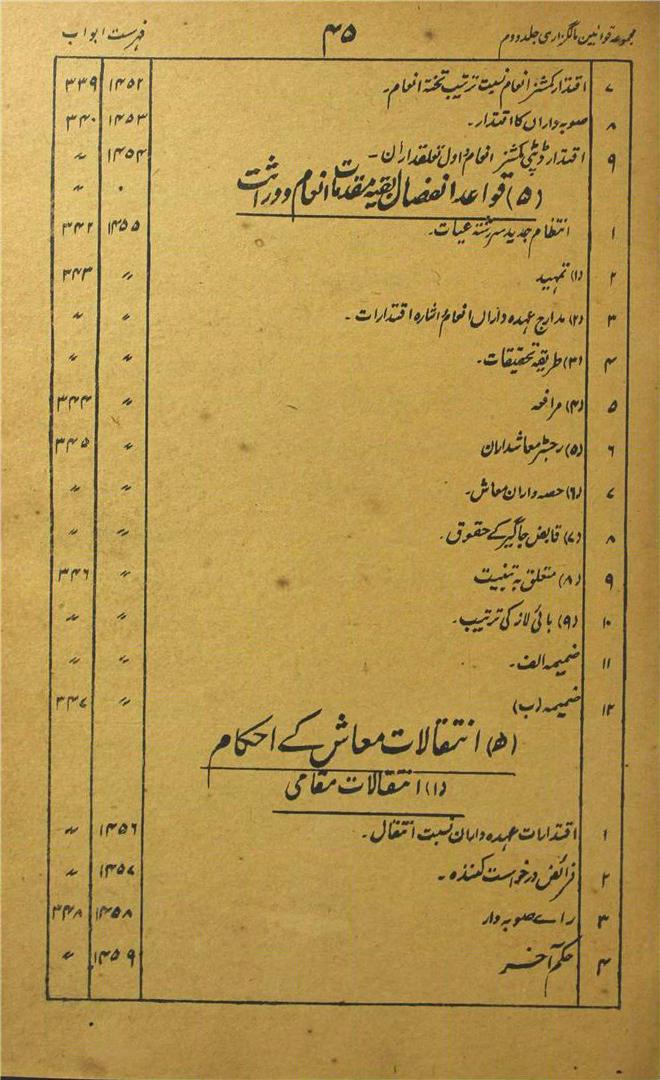 مجموعہ قوانین مالگزاری جلد دوم ۴۵ فہرست ابواب
۷ اقتدار کمشنر انعام نسبت ترتیب تختہ انعام۔ ۱۴۵۲ ۳۳۹
۸ صوبہ داراں کا اقتدار۔ ۱۴۵۳ ۳۴۰
۹ اقتدار ڈپٹی کمشنر انعام و اول تعلقداران۔ ۱۴۵۴ 〃
(۵) قواعد انفصال بقیہ مقدمات انعام و وراثت ۰ 〃
۱ انتظام جدید سررشتہ عطیات۔ ۱۴۵۵ ۳۴۲
۲ (۱) تمہید 〃 ۳۴۳
۳ (۲) مدارج عہدہ داراں انعام و اشارہ اقتدارات۔ 〃 〃
۴ (۳) طریقہ تحقیقات۔ 〃 〃
۵ (۴) مرافعہ 〃 ۳۴۴
۶ (۵) رجسٹر معاشداران 〃 ۳۴۵
۷ (۶) حصہ داران معاش۔ 〃 〃
۸ (۷) قابض جاگیر کے حقوق۔ 〃 〃
۹ (۸) متعلق بہ تبنیت 〃 ۳۴۶
۱۰ (۹) بائی لاز کی ترتیب۔ 〃 〃
۱۱ ضمیمہ الف۔ 〃 〃
۱۲ ضمیمہ (ب) 〃 ۳۴۷
(۵) انتقالات معاش کے احکام
(۱) انتقالات مقامی
۱ اقتدارات عہدہ داران نسبت انتقال۔ ۱۴۵۶ 〃
۲ فرائض درخواست کنندہ۔ ۱۴۵۷ 〃
۳ راے صوبہ دار ۱۴۵۸ ۳۴۸
۴ حکم آخر ۱۴۵۹ 〃